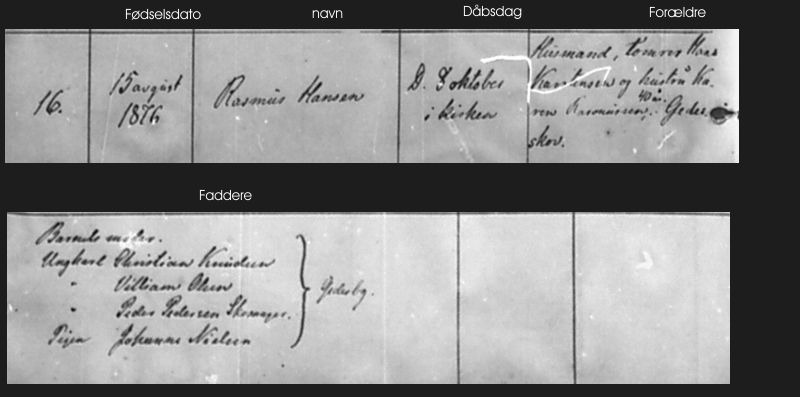 Fødselsdato navn Dåbsdag Forældre
16.
15 august
1876
Rasmus Hansen
D. 8 oktober
i kirken
Husmand, tømrer Hans
Karstensen og hustru Ka-
ren Rasmussen, 40 år. Gedes-
skov.
Faddere
Barnets moder.
Ungkarl Christian Knudsen
" Villiam Olsen
" Peder Pedersen
Pigen Johanne Nielsen
Gedesby.